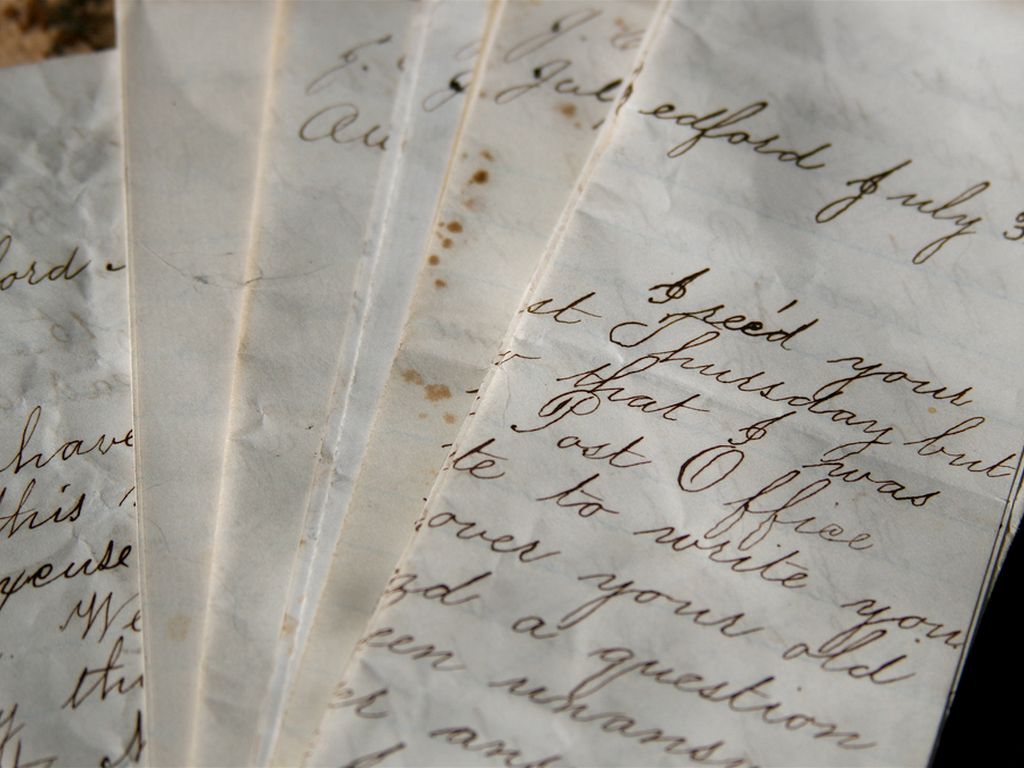 ord
have
this
xcuse
We
thi
E.
Au
J.
Jul
edford July 3
I rec'd your
st Thursday but
that I was
Post Office
te to write you
over your old
nd a question
een unans
er ans